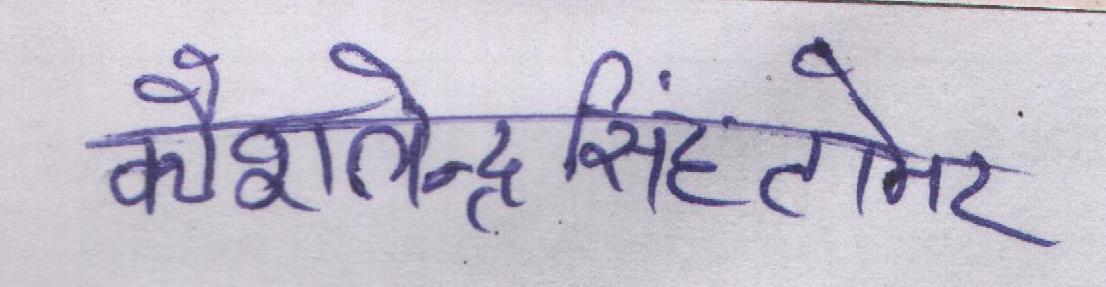 कौशलेन्द्र सिंह तोमर